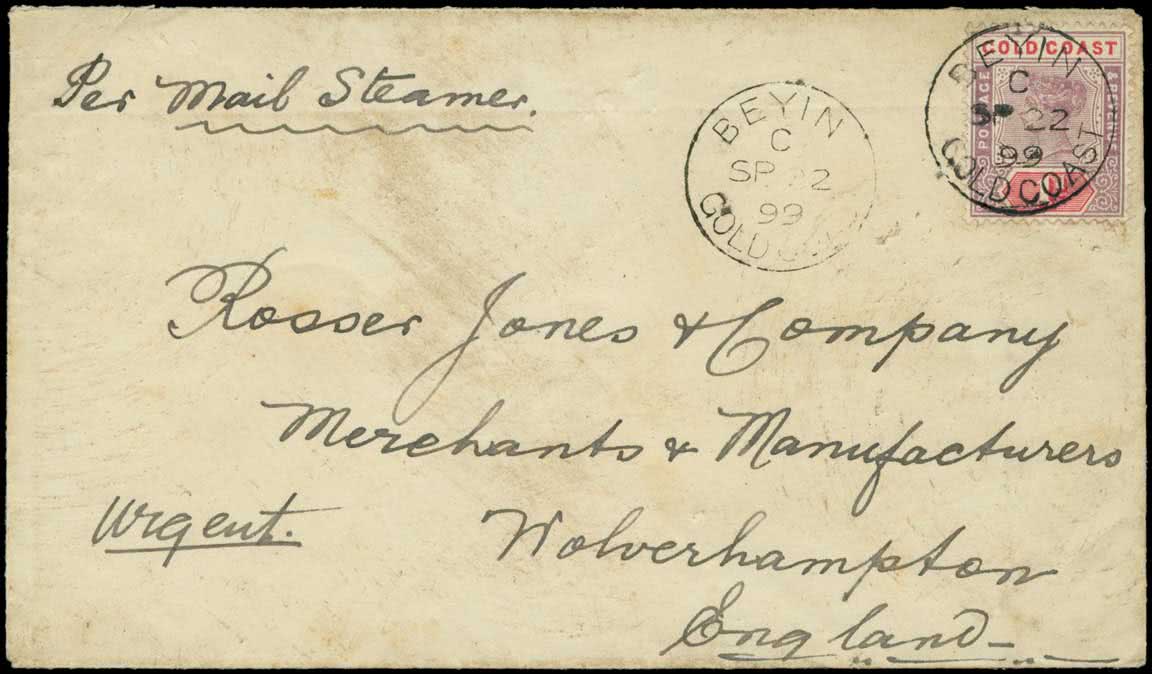 Per Mail Steamer.
BEYIN
C
SP 22
99
GOLD
GOLD COAST
POSTAGE
& REVENUE
BEYIN
C
SP 22
99
GOLD COAST
Rosser Jones & Company
Merchants & Manufacturers
Urgent.
Wolverhampton
England